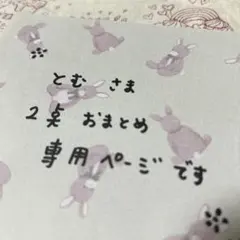 とむ さま
2点 おまとめ
専用 ページ です